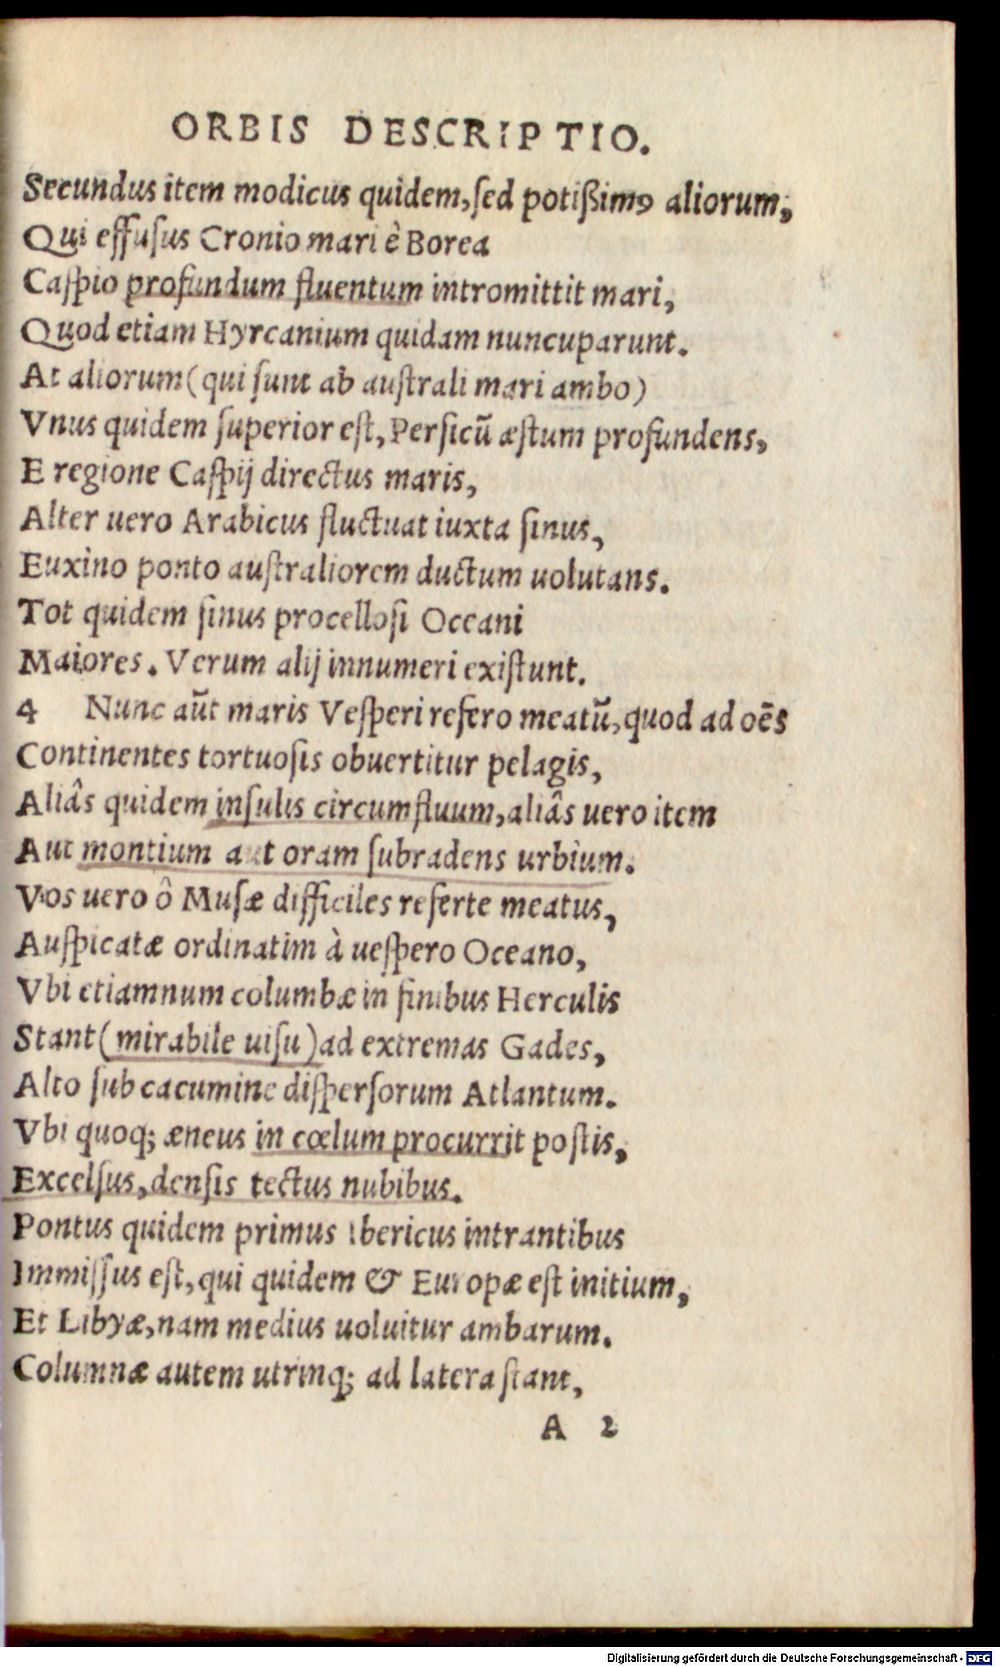 ORBIS DESCRIPTIO.
Secundus item modicus quidem, ſed potißimꝰ aliorum,
Qui effuſus Cronio mari è Borea
Caſpio profundum fluentum intromittit mari,
Quod etiam Hyrcanium quidam nuncuparunt.
At aliorum (qui ſunt ab auſtrali mari ambo)
Vnus quidem ſuperior eſt, Perſicū æſtum profundens,
E regione Caſpij directus maris,
Alter uero Arabicus fluctuat iuxta ſinus,
Euxino ponto auſtraliorem ductum uolutans.
Tot quidem ſinus procelloſi Oceani
Maiores. Verum alij innumeri exiſtunt.
4 Nunc aūt maris Veſperi refero meatū, quod ad oēs
Continentes tortuoſis obuertitur pelagis,
Aliâs quidem inſulis circumfluum, aliâs uero item
Aut montium aut oram ſubradens urbium.
Vos uero ô Muſæ difficiles referte meatus,
Auſpicatæ ordinatim à ueſpero Oceano,
Vbi etiamnum columbæ in finibus Herculis
Stant (mirabile uiſu) ad extremas Gades,
Alto ſub cacumine diſperſorum Atlantum.
Vbi quoq; æneus in cœlum procurrit poſtis,
Excelſus, denſis tectus nubibus.
Pontus quidem primus Ibericus intrantibus
Immiſſus eſt, qui quidem & Europæ eſt initium,
Et Libyæ, nam medius uoluitur ambarum.
Columnæ autem utrinq; ad latera ſtant,
A 2
Digitalisierung gefördert durch die Deutsche Forschungsgemeinschaft - DFG